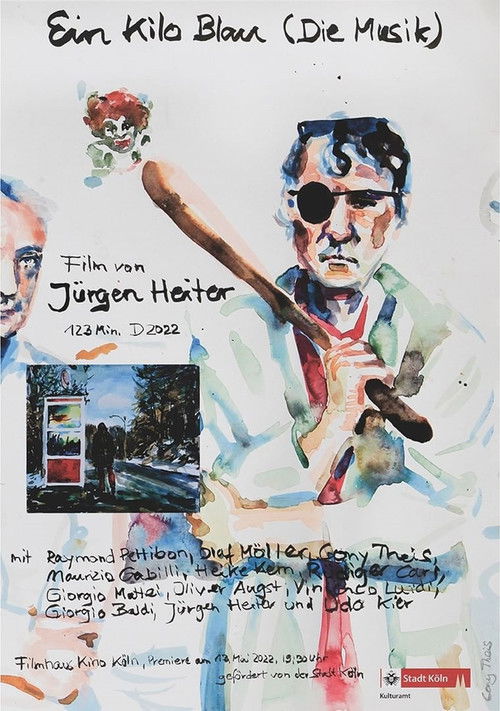 Ein Kilo Blau (Die Musik)
Film von
Jürgen Heiter
123 Min. D 2022
mit Raymond Pettibon, Olaf Möller, Cony Theis,
Maurizio Gabilli, Heike Kern, Rüdiger Carl,
Giorgio Mattei, Oliver Augst, Luidi,
Giorgio Baldi, Jürgen Heiter und Udo Kier
Filmhaus Kino Köln, Premiere am 13. Mai 2022, 19,30 Uhr
gefördert von der Stadt Köln
Stadt Köln
Kulturamt
Cony Theis